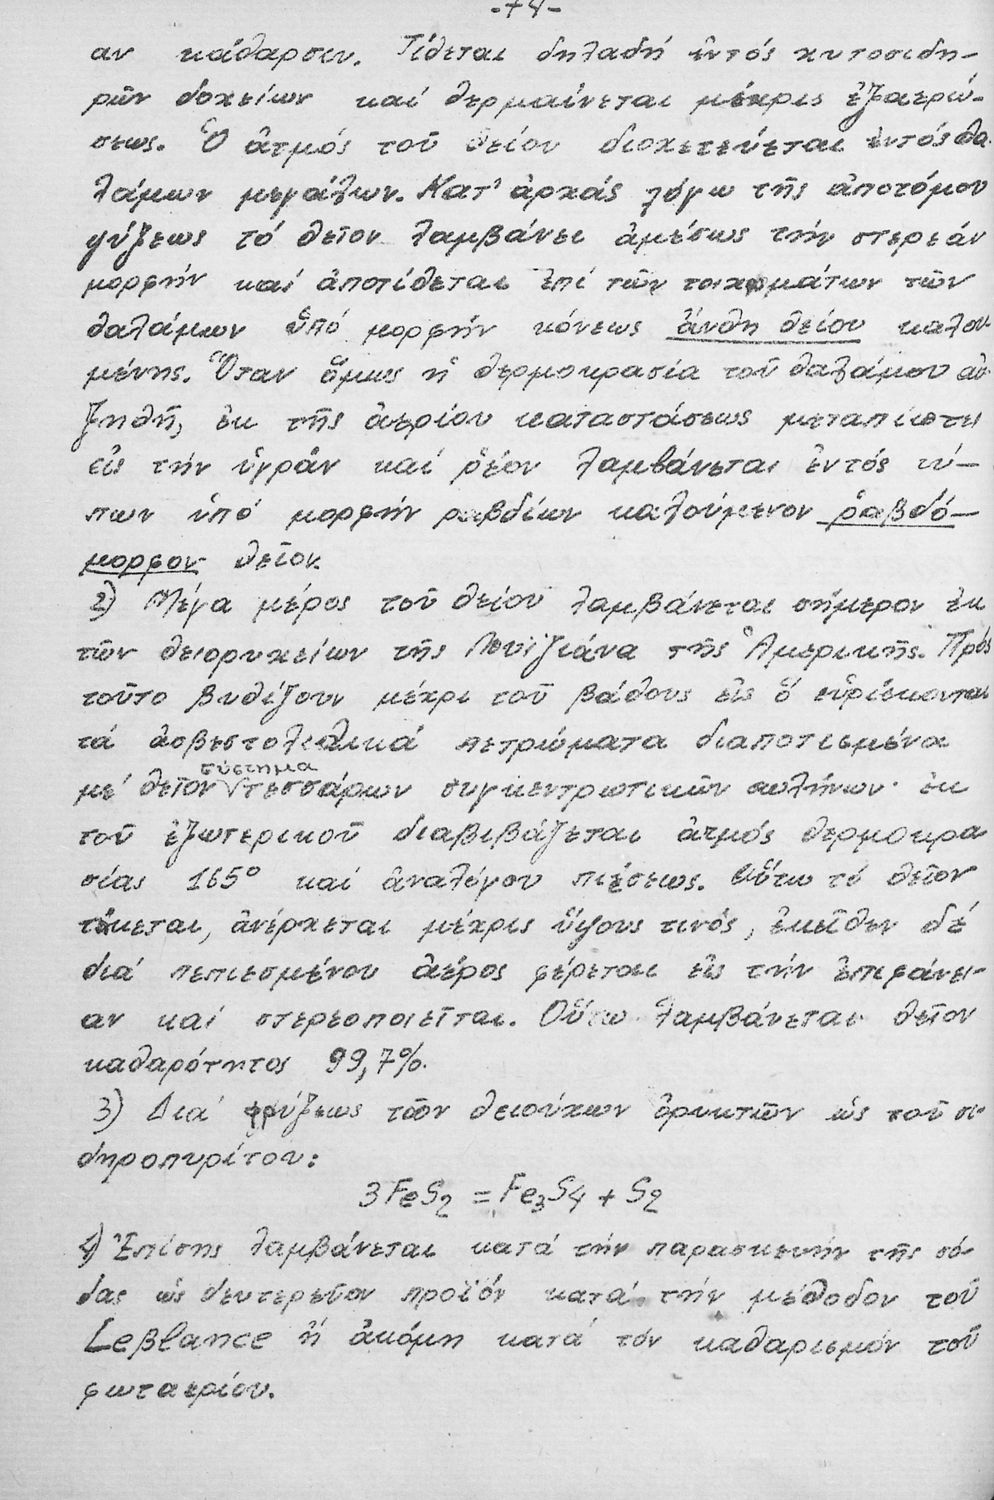 -74-
αν κάθαρσιν. Τίθεται δηλαδή ἐντός χυτοσιδη-
ρῶν δοχείων καί θερμαίνεται μέχρις ἐξαερώ-
σεως. Ὁ ἀτμός τοῦ θείου διοχετεύεται ἐντός θα-
λάμων μεγάλων. Κατ' ἀρχάς λόγω τῆς ἀποτόμου
ψύξεως τό θεῖον λαμβάνει ἀμέσως τήν στερεάν
μορφήν καί ἀποτίθεται ἐπί τῶν τοιχωμάτων τῶν
θαλάμων ὑπό μορφήν κόνεως ἄνθη θείου καλου
μένης. Ὅταν ὅμως ἡ θερμοκρασία τοῦ θαλάμου αὐ-
ξηθῆ, ἐκ τῆς ἀερίου καταστάσεως μεταπίπτει
εἰς τήν ὑγράν καί ῥέον λαμβάνεται ἐντός τύ-
πων ὑπό μορφήν ραβδίων καλούμενον ῥαβδό-
μορφον θεῖον.
2) Μέγα μέρος τοῦ θείου λαμβάνεται σήμερον ἐκ
τῶν θειορυχείων τῆς Λουιζιάνα τῆς Ἀμερικῆς. Πρός
τοῦτο βυθίζουν μέχρι τοῦ βάθους εἰς ὅ εὑρίσκονται
τά ἀσβεστολιθικά πετρώματα διαποτισμένα
μέ θεῖον σύστημα τεσσάρων συγκεντρωτικῶν σωλήνων· ἐκ
τοῦ ἐξωτερικοῦ διαβιβάζεται ἀτμός θερμοκρα
σίας 165° καί ἀναλόγου πιέσεως. Οὕτω τό θεῖον
τήκεται, ἀνέρχεται μέχρις ὕψους τινός, ἐκεῖθεν δέ
διά πεπιεσμένου ἀέρος φέρεται εἰς τήν ἐπιφάνει-
αν καί στερεοποιεῖται. Οὕτω λαμβάνεται θεῖον
καθαρότητος 99,7%.
3) Διά φρύξεως τῶν θειούχων ὀρυκτῶν ὡς τοῦ σι-
δηροπυρίτου:
3FeS2 = Fe3S4 + S2
4) Ἐπίσης λαμβάνεται κατά τήν παρασκευήν τῆς σό-
δας ὡς δευτερεῦον προϊόν κατά τήν μέθοδον τοῦ
Leβlance ἤ ἀκόμη κατά τόν καθαρισμόν τοῦ
φωταερίου.